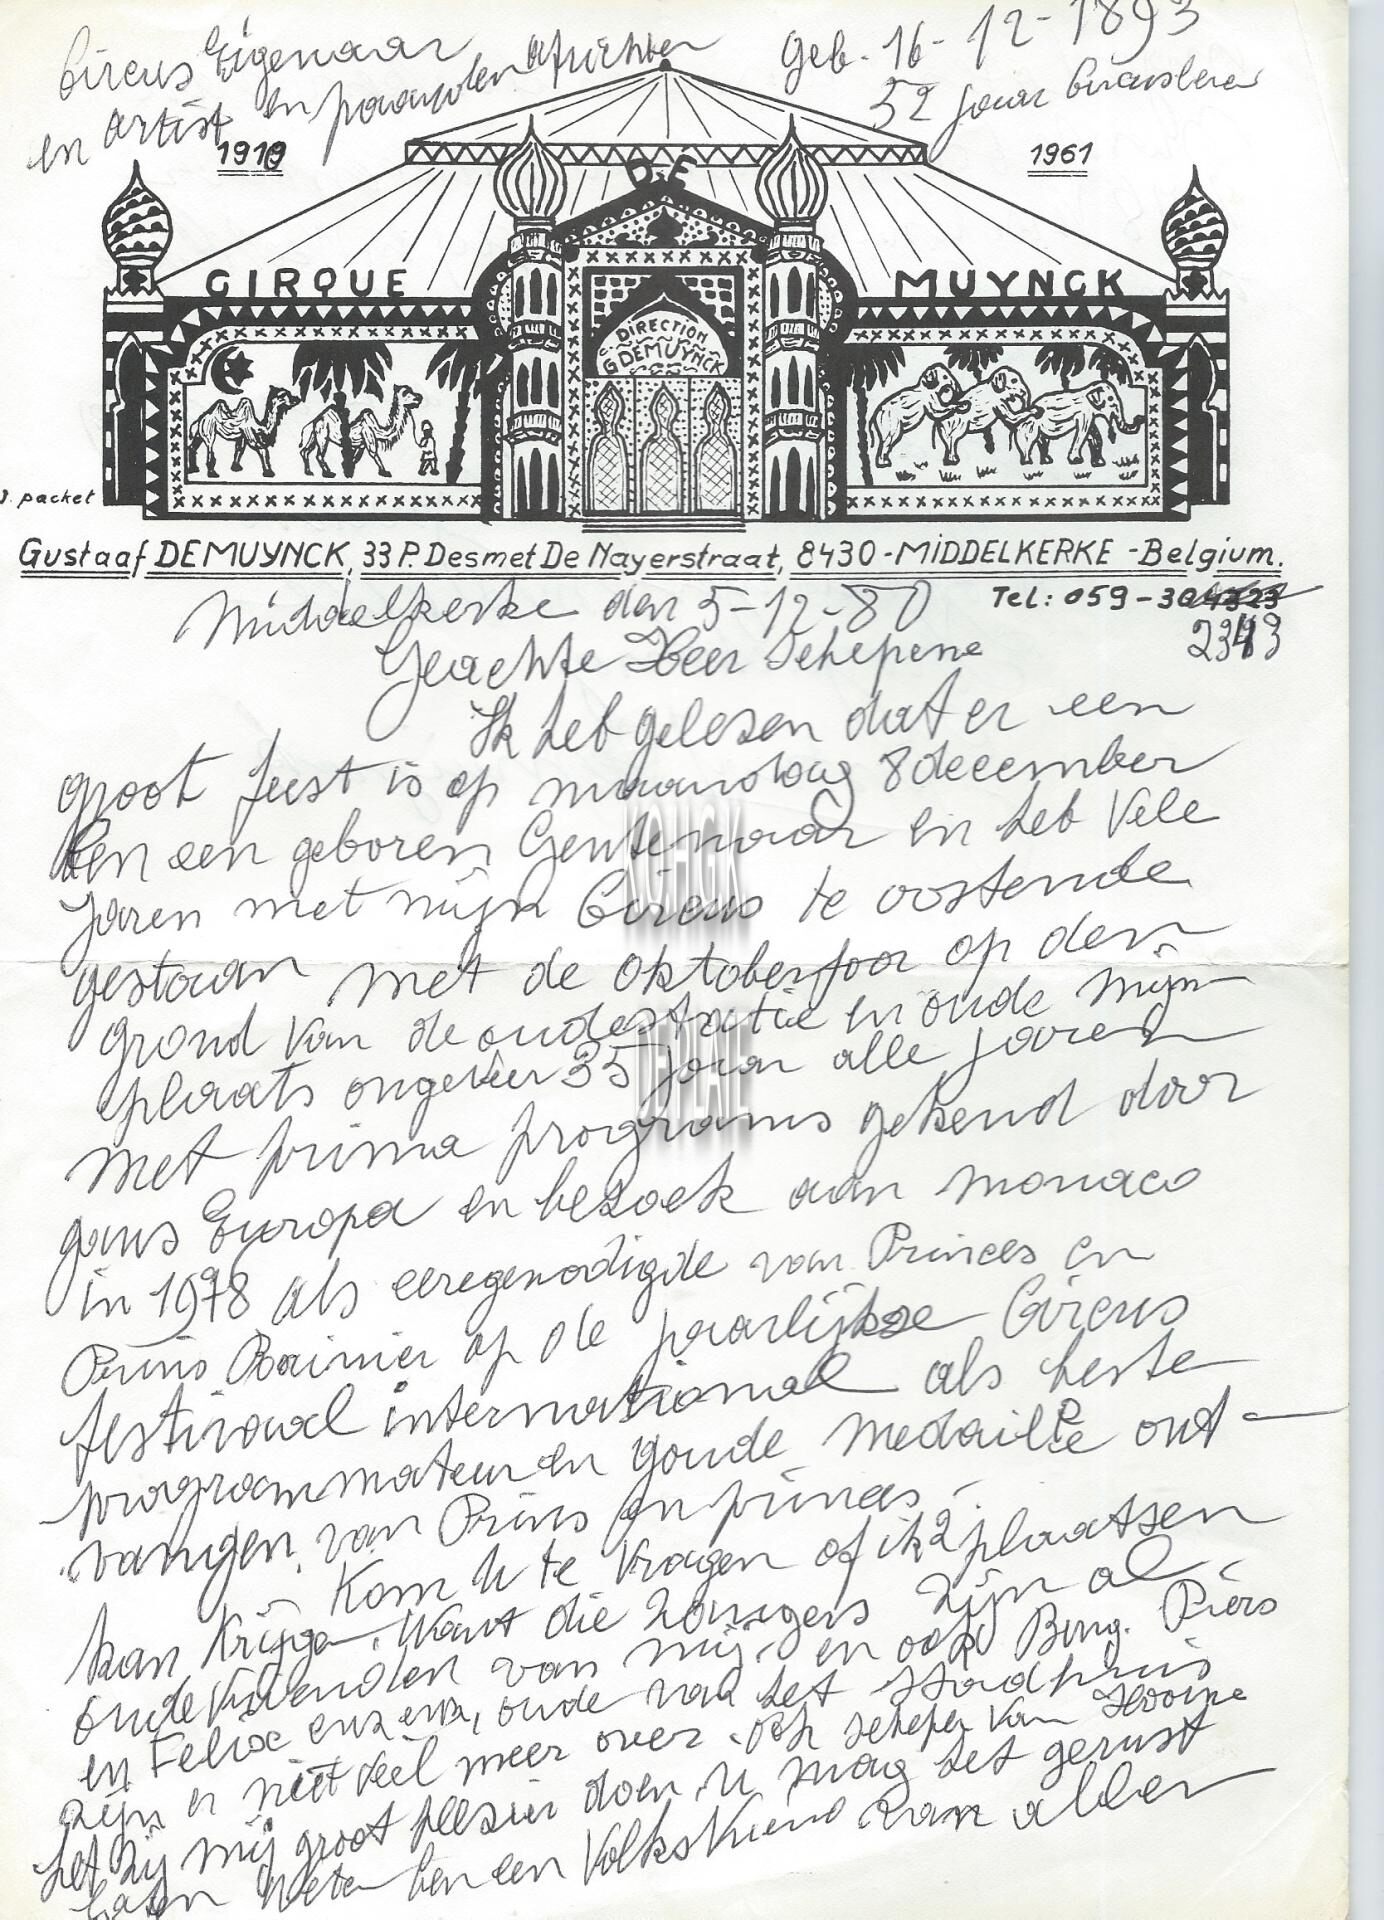 Circus Eigenaar
en artist en paarden africhter
geb. 16-12-1893
52 jaar Circusleven
1919
1961
DE
CIRQUE
MUYNCK
DIRECTION
G. DEMUYNCK
J. packet
Gustaaf DEMUYNCK, 33 P. Desmet De Nayerstraat, 8430-MIDDELKERKE-Belgium.
Tel: 059-304323
2343
Middelkerke den 5-12-80
Geachte Heer Schepene
Ik heb gelezen dat er een
groot feest is op maandag 8 december
Ben een geboren Gentenaar en heb vele
jaren met mijn Circus te oostende
gestaan met de oktoberfoor op den
grond van de oude statie en oude mijn
plaats ongeveer 35 jaar alle jaren
met prima programs gekend door
gans Europa en bezoek aan monaco
in 1978 als eeregenodigde van Princes en
Prins Rainier op de jaarlijkse Circus
festivaal internationaal als beste
programmateur en goude medaille ont-
vangen van Prins en princes.
Kom U te vragen of ik 2 plaatsen
kan krijgen. Want die zangers zijn al
oude vrienden van mij en ook Burg. Piers
en Felix enz enz, oude van het stadhuis
zijn er niet veel meer over. ook schepen van
het zij mij groot plesier doen U mag het gerust
laten weten ben een Volksvriend van allen
KOHGK
DE PLATE